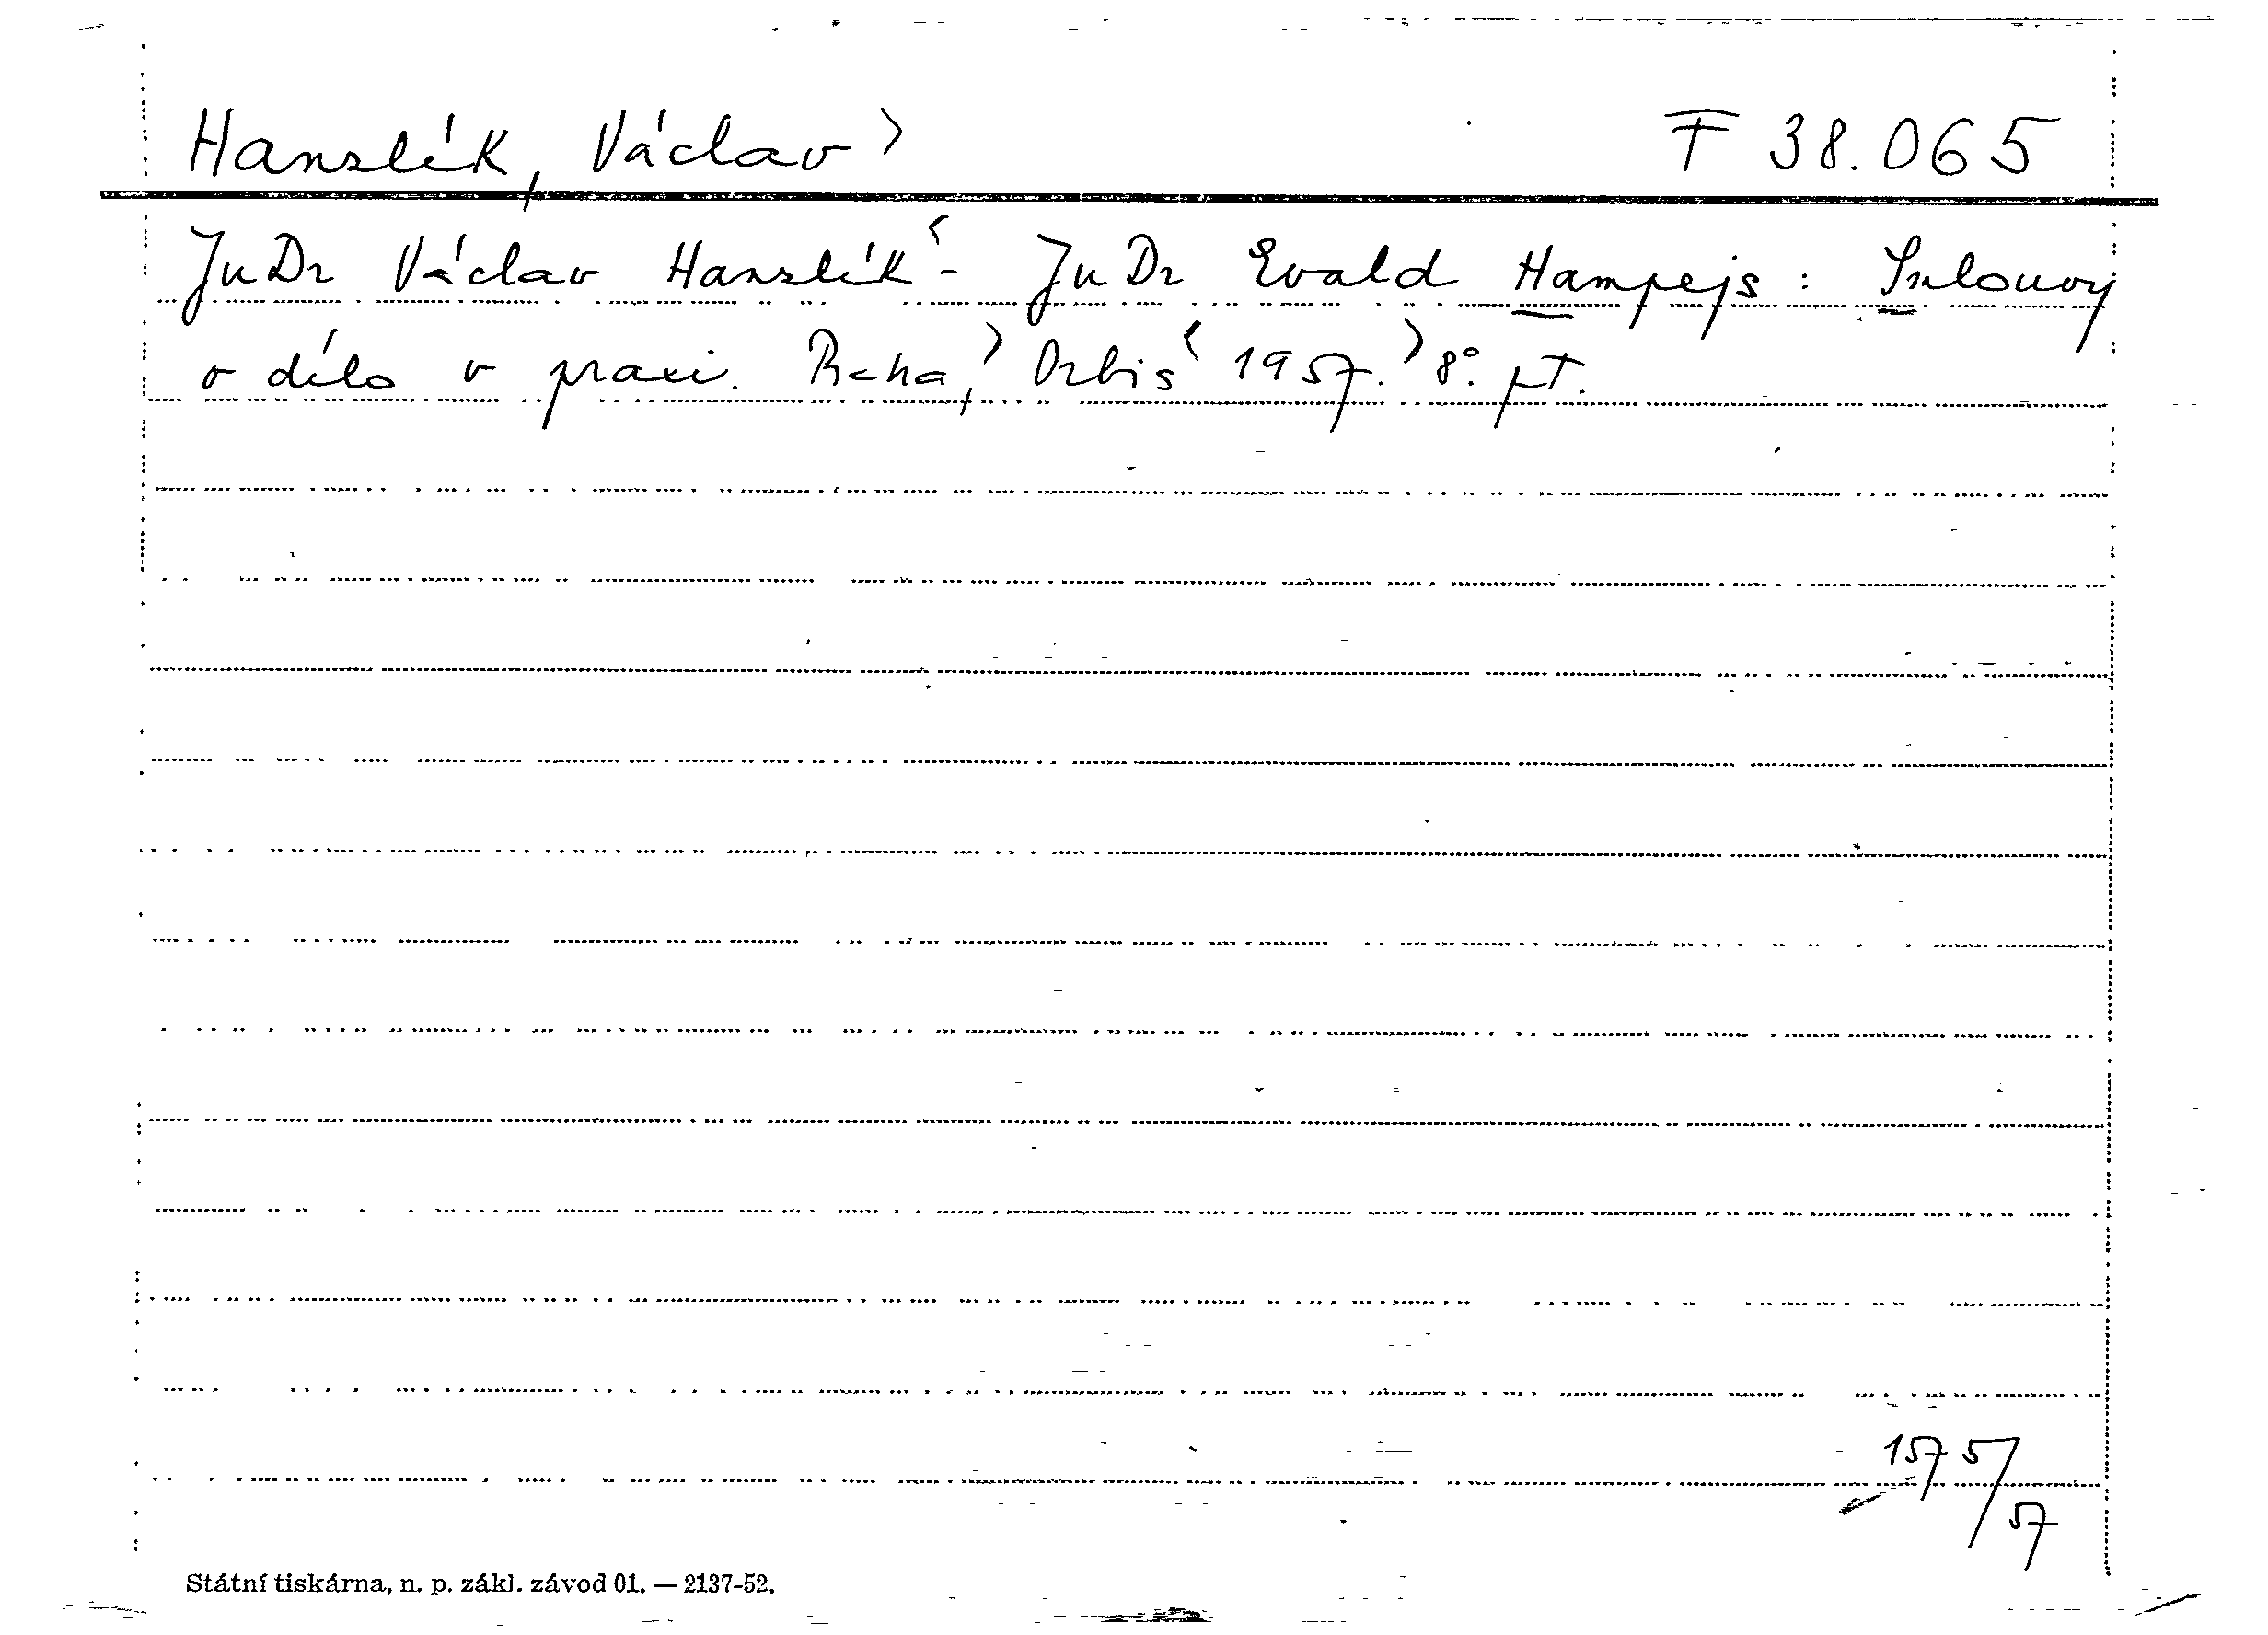 Hanzlík, Václav > F 38.065
JuDr Václav Hanzlík < - JuDr Evald Hampejs : Smlouvy
o dílo v praxi. Praha, > Orbis < 1957. > 8°. pT.
1575/57
Státní tiskárna, n. p. zákl. závod 01. — 2137-52.